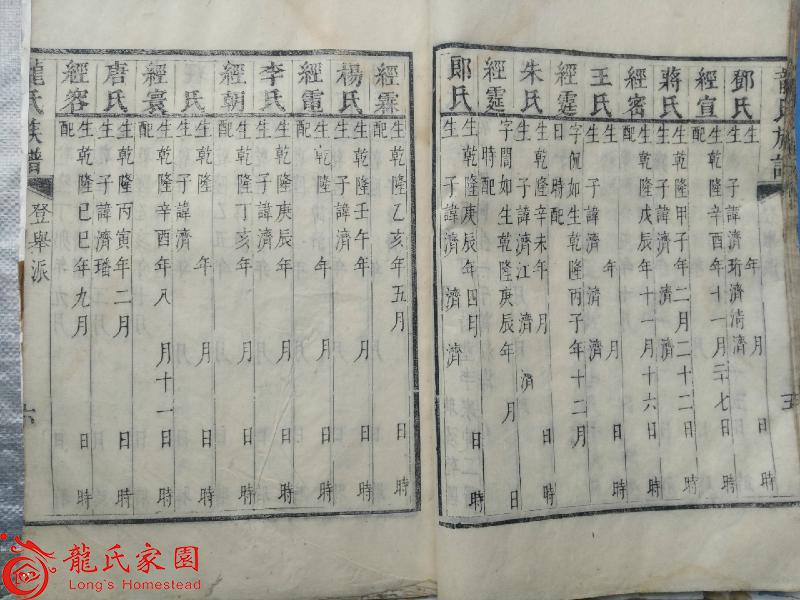 龍氏族譜
五
鄧氏 生 年 月 日 時
子諱濟珩濟淸濟
經宣 生乾隆辛酉年十一月二七 日 時
配
蔣氏 生乾隆甲子年二月二十二 日 時
子諱濟 濟 濟
經密 生乾隆戊辰年十一月十六 日 時
配
王氏 生 年 月 日 時
子諱濟 濟 濟
經霆 字侃如生乾隆丙子年十二月
日 時配
朱氏 生乾隆辛未年 月 日 時
子諱濟江 濟 濟
經霆 字聞如生乾隆庚辰年 月 日
時配
郎氏 生乾隆庚辰年四月 日 時
子諱濟 濟 濟
經霖 生乾隆乙亥年五月 日 時
配
楊氏 生乾隆壬午年 月 日 時
子諱濟
經電 生乾隆 年 月 日 時
配
李氏 生乾隆庚辰年 月 日 時
子諱濟
經朝 生乾隆丁亥年 月 日 時
配
氏 生 年 月 日 時
子諱濟
經寰 生乾隆辛酉年八月十一 日 時
配
唐氏 生乾隆丙寅年二月 日 時
子諱濟璠
經容 生乾隆己巳年九月 日 時
配
龍氏族譜 登舉派
六
龍氏家園
Long's Homestead